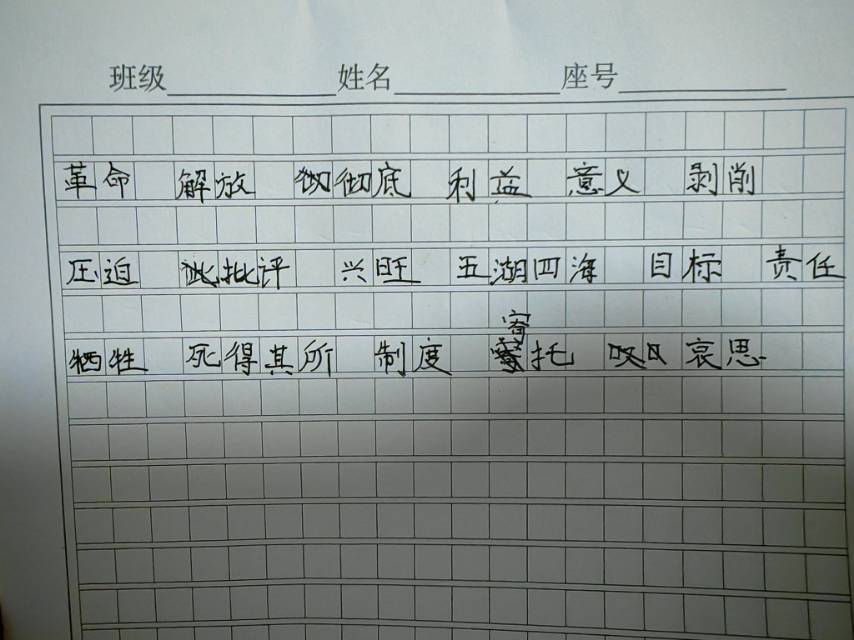 班级 姓名 座号
革命 解放 彻底 利益 意义 剥削
压迫 批评 兴旺 五湖四海 目标 责任
牺牲 死得其所 制度 寄托 哀思